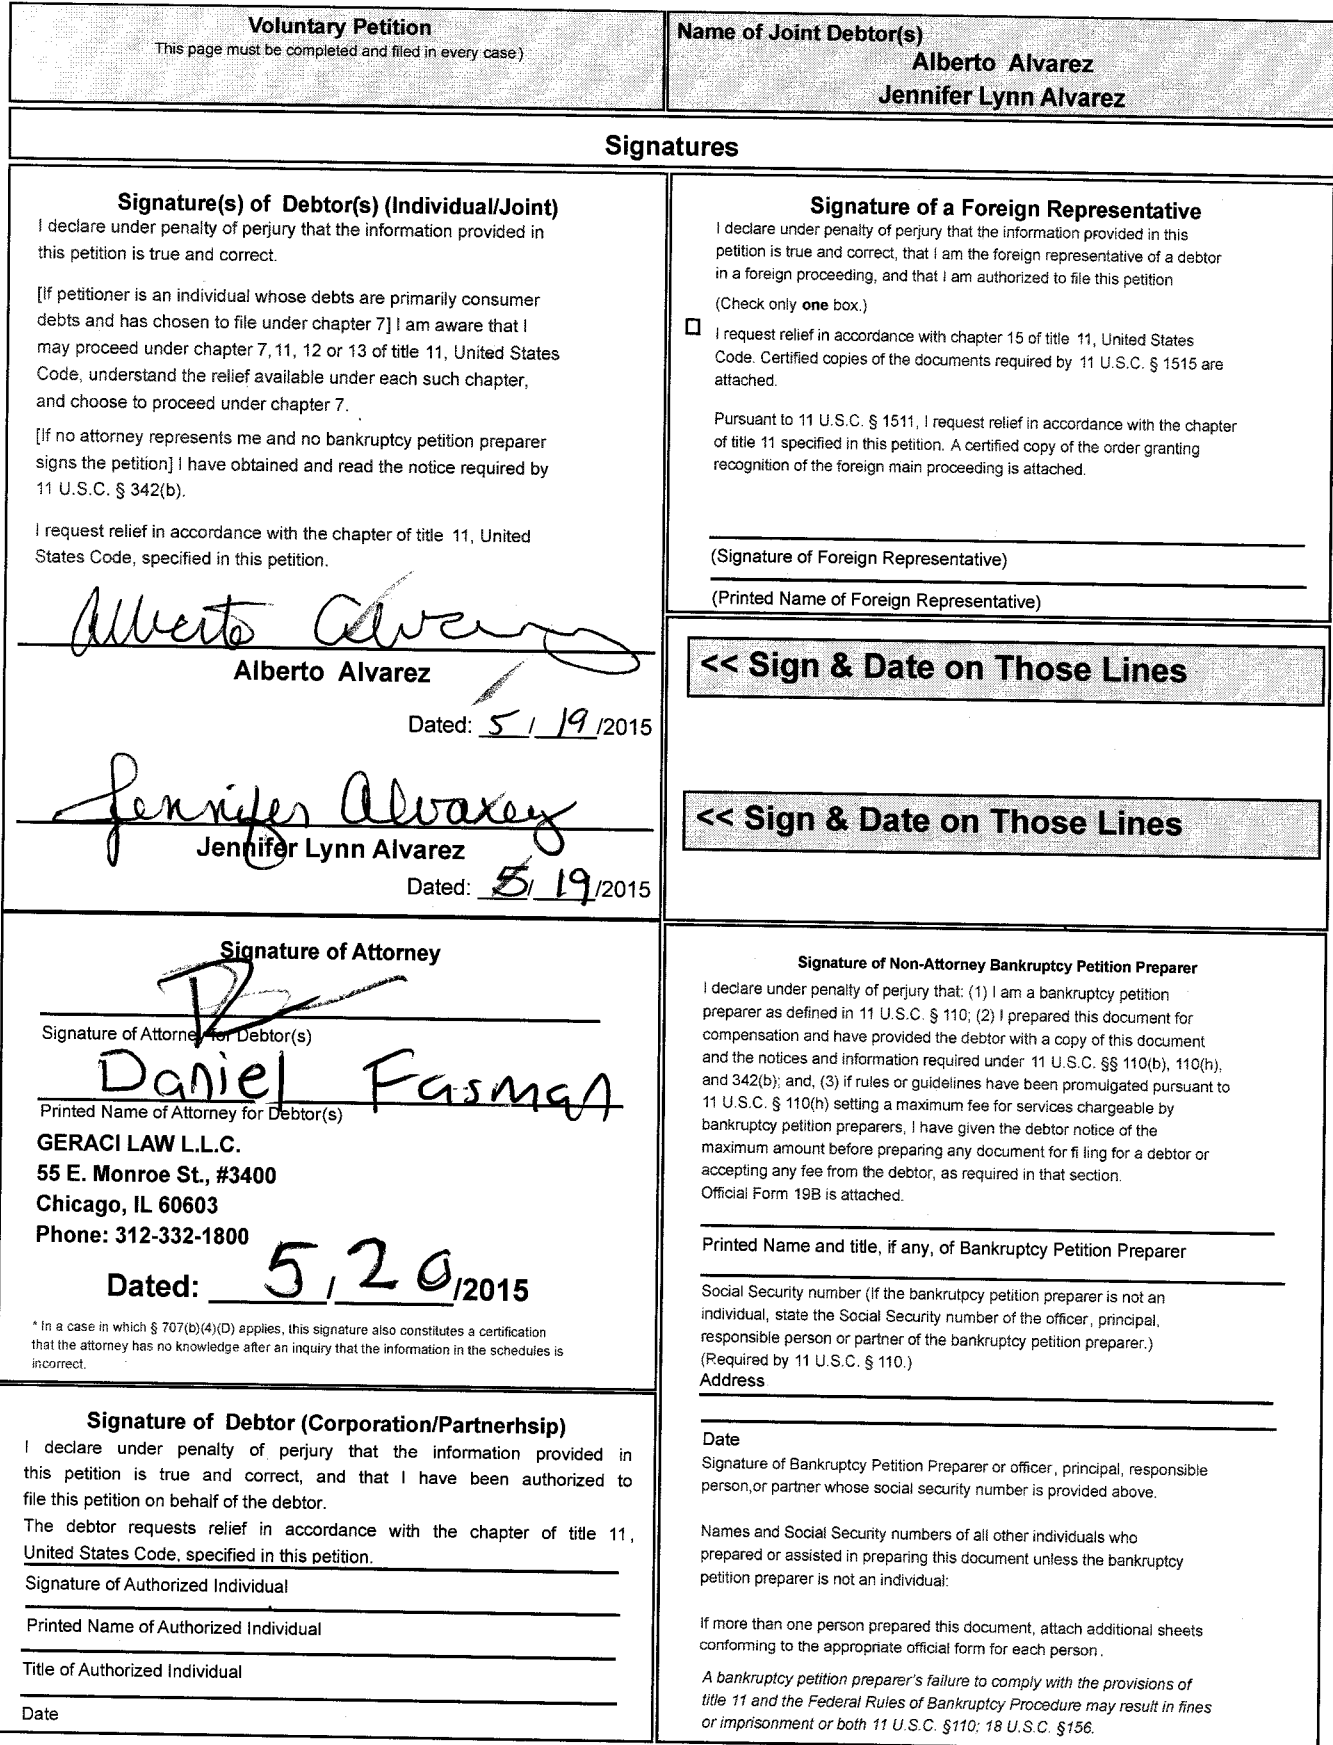 Voluntary Petition
This page must be completed and filed in every case)
Name of Joint Debtor(s)
Alberto Alvarez
Jennifer Lynn Alvarez
Signatures
Signature(s) of Debtor(s) (Individual/Joint)
I declare under penalty of perjury that the information provided in
this petition is true and correct.
[If petitioner is an individual whose debts are primarily consumer
debts and has chosen to file under chapter 7] I am aware that I
may proceed under chapter 7, 11, 12 or 13 of title 11, United States
Code, understand the relief available under each such chapter,
and choose to proceed under chapter 7.
[If no attorney represents me and no bankruptcy petition preparer
signs the petition] I have obtained and read the notice required by
11 U.S.C. § 342(b).
I request relief in accordance with the chapter of title 11, United
States Code, specified in this petition.
Alberto Alvarez
Alberto Alvarez
Dated: 5 / 19 /2015
Jennifer Alvarez
Jennifer Lynn Alvarez
Dated: 5/ 19 /2015
Signature of Attorney
Signature of Attorney for Debtor(s)
Daniel Fasman
Printed Name of Attorney for Debtor(s)
GERACI LAW L.L.C.
55 E. Monroe St., #3400
Chicago, IL 60603
Phone: 312-332-1800
Dated: 5 / 20 /2015
* In a case in which § 707(b)(4)(D) applies, this signature also constitutes a certification
that the attorney has no knowledge after an inquiry that the information in the schedules is
incorrect.
Signature of Debtor (Corporation/Partnerhsip)
I declare under penalty of perjury that the information provided in
this petition is true and correct, and that I have been authorized to
file this petition on behalf of the debtor.
The debtor requests relief in accordance with the chapter of title 11,
United States Code, specified in this petition.
Signature of Authorized Individual
Printed Name of Authorized Individual
Title of Authorized Individual
Date
Signature of a Foreign Representative
I declare under penalty of perjury that the information provided in this
petition is true and correct, that I am the foreign representative of a debtor
in a foreign proceeding, and that I am authorized to file this petition
(Check only one box.)
I request relief in accordance with chapter 15 of title 11, United States
Code. Certified copies of the documents required by 11 U.S.C. § 1515 are
attached.
Pursuant to 11 U.S.C. § 1511, I request relief in accordance with the chapter
of title 11 specified in this petition. A certified copy of the order granting
recognition of the foreign main proceeding is attached.
(Signature of Foreign Representative)
(Printed Name of Foreign Representative)
<< Sign & Date on Those Lines
<< Sign & Date on Those Lines
Signature of Non-Attorney Bankruptcy Petition Preparer
I declare under penalty of perjury that: (1) I am a bankruptcy petition
preparer as defined in 11 U.S.C. § 110; (2) I prepared this document for
compensation and have provided the debtor with a copy of this document
and the notices and information required under 11 U.S.C. §§ 110(b), 110(h),
and 342(b); and, (3) if rules or guidelines have been promulgated pursuant to
11 U.S.C. § 110(h) setting a maximum fee for services chargeable by
bankruptcy petition preparers, I have given the debtor notice of the
maximum amount before preparing any document for fi ling for a debtor or
accepting any fee from the debtor, as required in that section.
Official Form 19B is attached.
Printed Name and title, if any, of Bankruptcy Petition Preparer
Social Security number (If the bankrutpcy petition preparer is not an
individual, state the Social Security number of the officer, principal,
responsible person or partner of the bankruptcy petition preparer.)
(Required by 11 U.S.C. § 110.)
Address
Date
Signature of Bankruptcy Petition Preparer or officer, principal, responsible
person,or partner whose social security number is provided above.
Names and Social Security numbers of all other individuals who
prepared or assisted in preparing this document unless the bankruptcy
petition preparer is not an individual:
If more than one person prepared this document, attach additional sheets
conforming to the appropriate official form for each person.
A bankruptcy petition preparer's failure to comply with the provisions of
title 11 and the Federal Rules of Bankruptcy Procedure may result in fines
or imprisonment or both 11 U.S.C. §110; 18 U.S.C. §156.